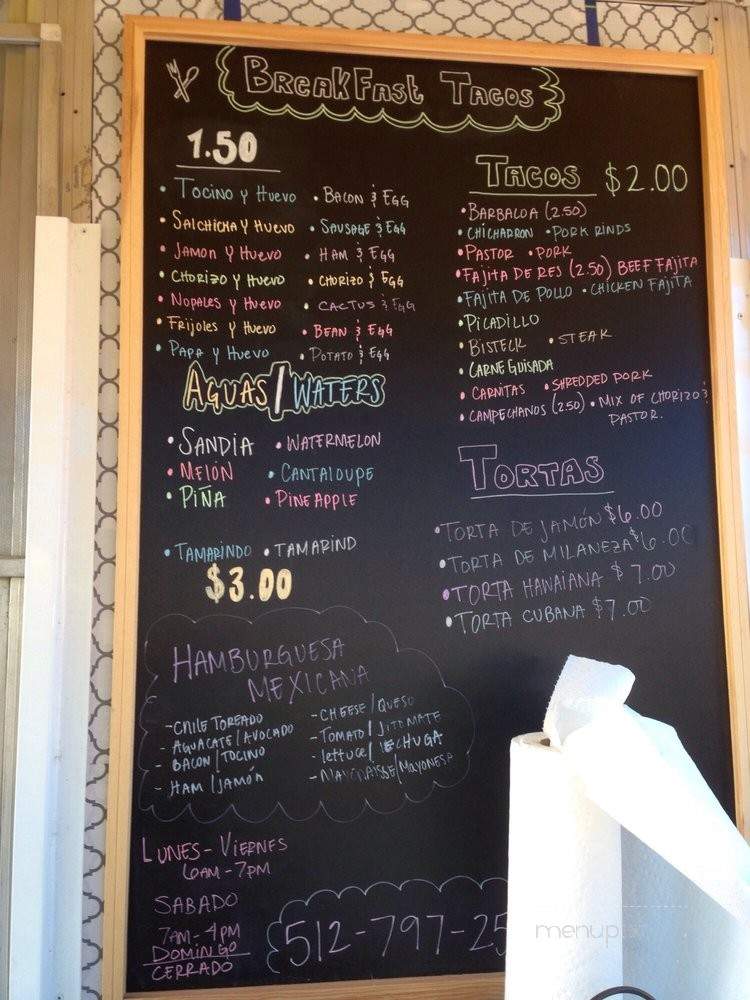 BreakFast Tacos
1.50
• Tocino y Huevo • Bacon & Egg
• Salchicha y Huevo • Sausage & Egg
• Jamon y Huevo • Ham & Egg
• Chorizo y Huevo • Chorizo & Egg
• Nopales y Huevo • Cactus & Egg
• Frijoles y Huevo • Bean & Egg
• Papa y Huevo • Potato & Egg
Aguas/Waters
• Sandia • Watermelon
• Melón • Cantaloupe
• Piña • Pineapple
• Tamarindo • Tamarind
$3.00
Tacos $2.00
• Barbacoa (2.50)
• Chicharron • Pork Rinds
• Pastor • Pork
• Fajita de Res (2.50) Beef Fajita
• Fajita de Pollo • Chicken Fajita
• Picadillo
• Bisteck • Steak
• Carne Guisada
• Carnitas • Shredded Pork
• Campechanos (2.50) • Mix of Chorizo &
Pastor.
Tortas
• Torta de Jamón $6.00
• Torta de Milaneza $6.00
• Torta Hawaiana $7.00
• Torta Cubana $7.00
Hamburguesa
Mexicana
- Chile Toreado
- Aguacate/Avocado
- Bacon/Tocino
- Ham/Jamón
- Cheese/Queso
- Tomato/Jitomate
- lettuce/lechuga
- Mayonesa
Lunes - Viernes
6am - 7pm
Sabado
7am - 4pm
Domingo
Cerrado
512-797-25
menup